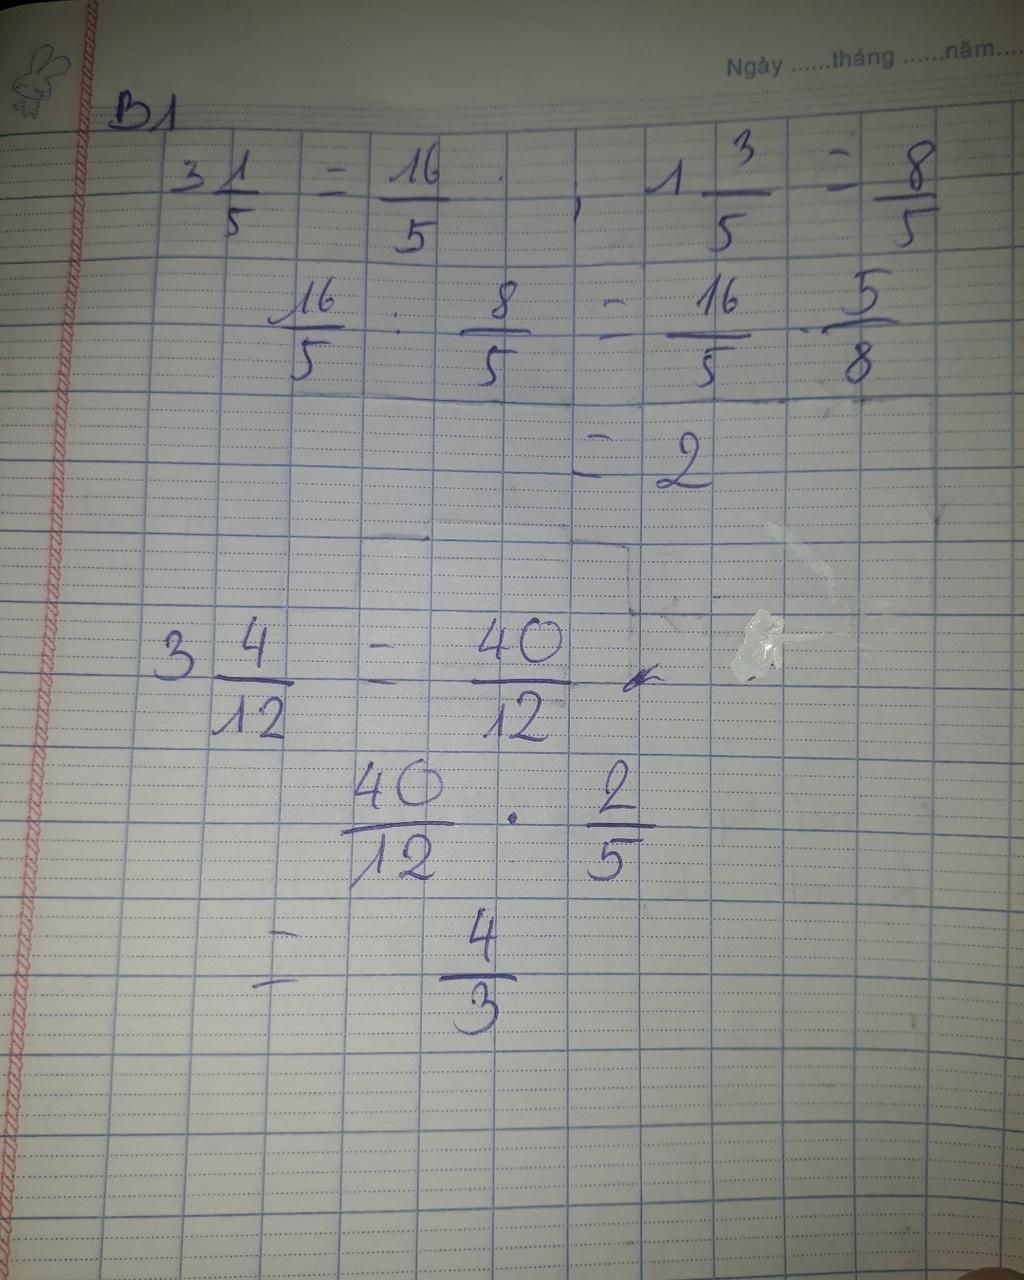 Ngày ......tháng ......năm....
B1
3 1/5 = 16/5 , 1 3/5 = 8/5
16/5 : 8/5 = 16/5 . 5/8
= 2
3 4/12 = 40/12
40/12 . 2/5
= 4/3